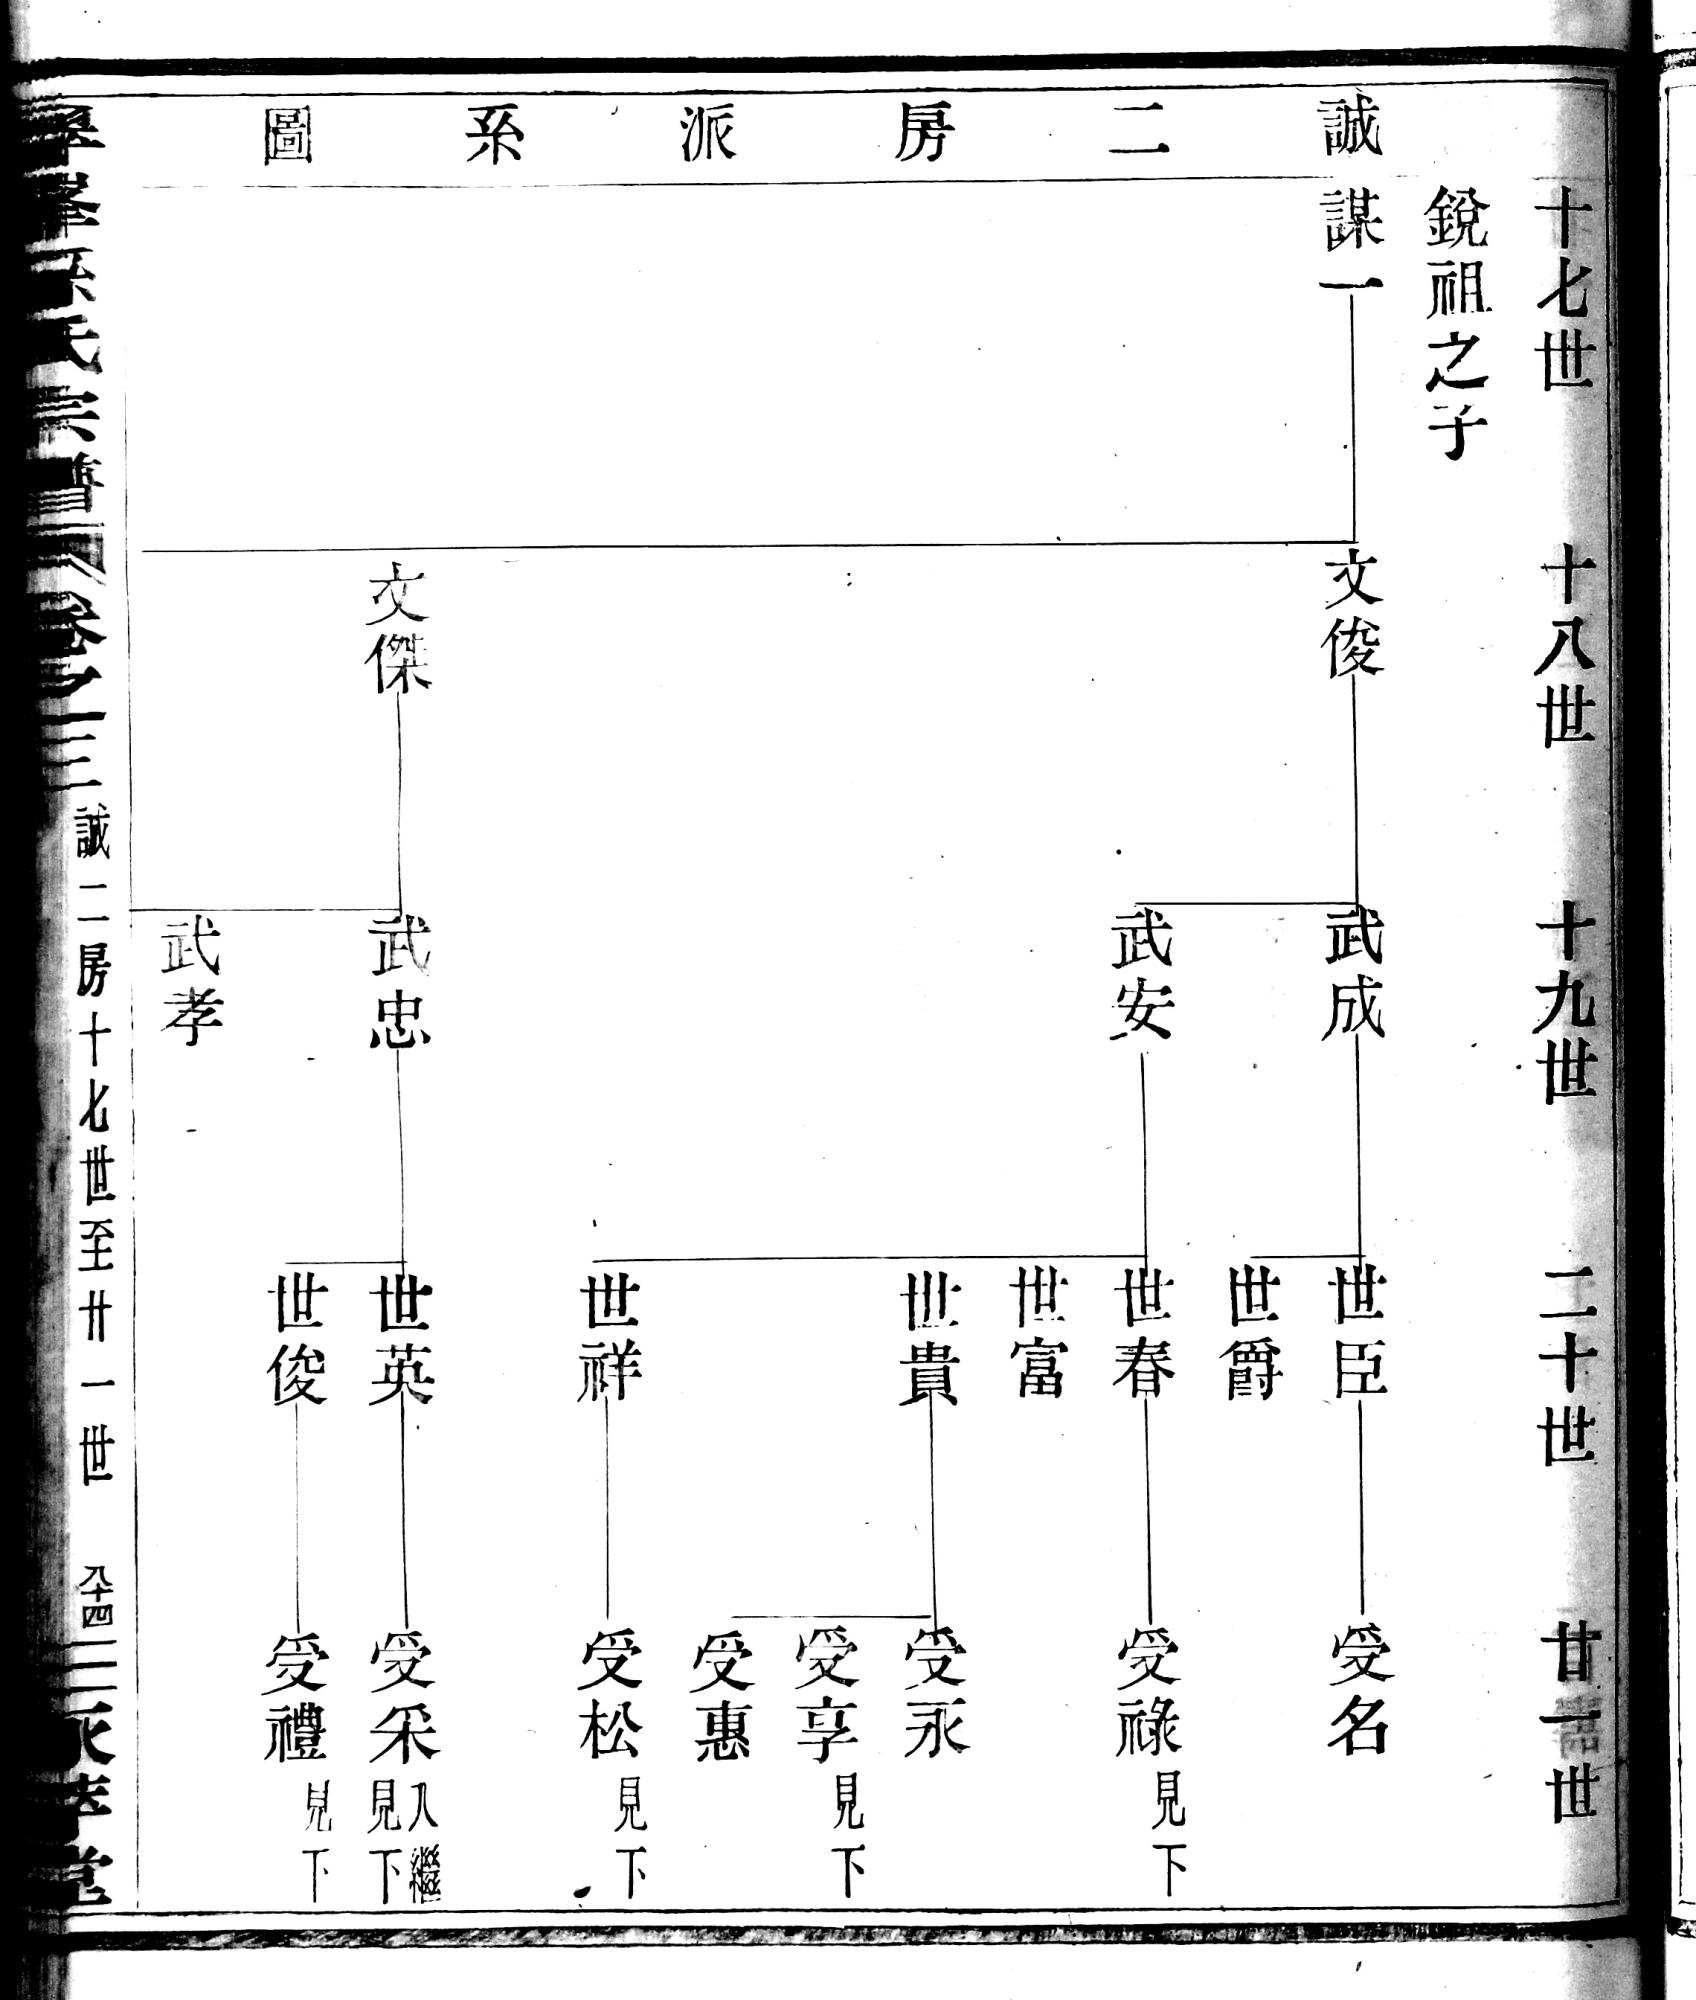 誠二房派系圖
十七世
十八世
十九世
二十世
廿一世
銳祖之子
謀一
文俊
文傑
武成
武安
武忠
武孝
世臣
世爵
世春
世富
世貴
世祥
世英
世俊
受名
受祿見下
受永
受享見下
受惠
受松見下
受采入繼見下
受禮見下
氏宗譜卷 三 誠二房十七世至卄一世 八十四 孝堂